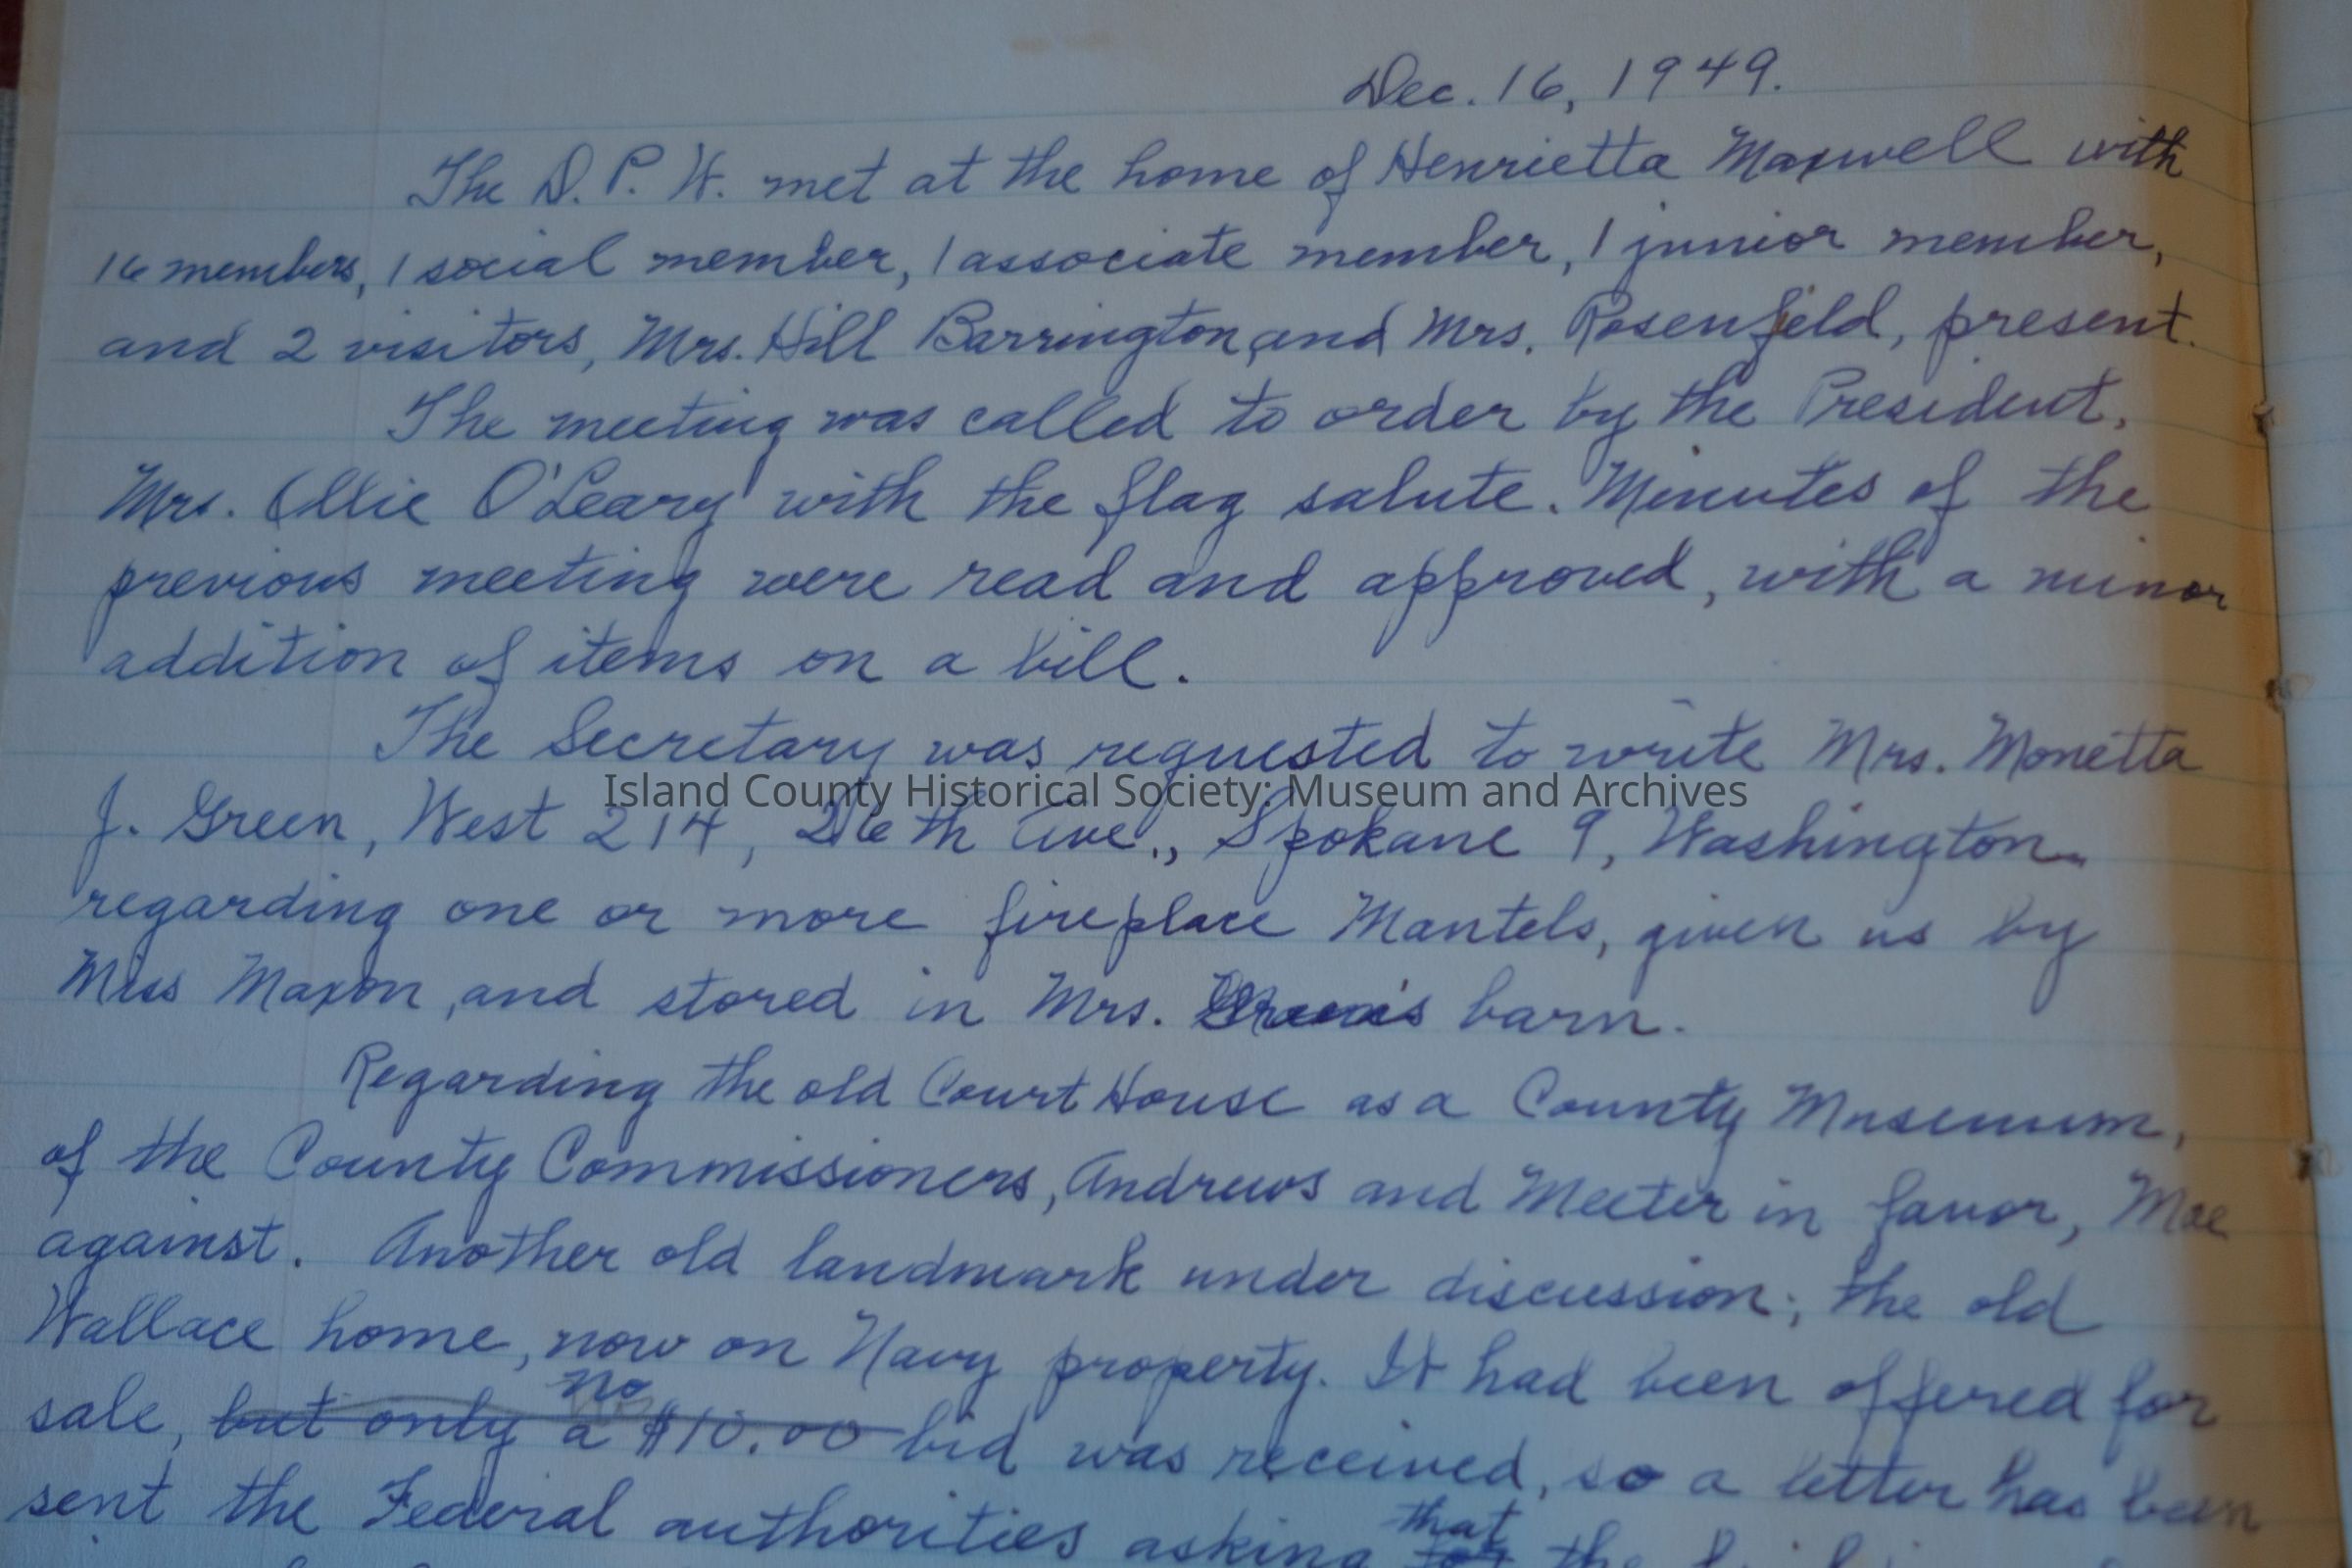 Dec. 16, 1949.
The D. P. W. met at the home of Henrietta Maxwell with
16 members, 1 social member, 1 associate member, 1 junior member,
and 2 visitors, Mrs. Hill Barrington, and Mrs. Rosenfield, present.
The meeting was called to order by the President,
Mrs. Ollie O'Leary with the flag salute. Minutes of the
previous meeting were read and approved, with a minor
addition of items on a bill.
The Secretary was requested to write Mrs. Monetta
Island County Historical Society: Museum and Archives
J. Green, West 214, 26th Ave., Spokane 9, Washington
regarding one or more fireplace Mantels, given us by
Miss Maxon, and stored in Mrs. barn.
Regarding the old Court House as a County Museum,
of the County Commissioners, Andrews and Meeter in favor, Moe
against. Another old landmark under discussion; the old
Wallace home, now on Navy property. It had been offered for
no
sale, but only a $10.00 bid was received, so a letter has been
that
sent the Federal authorities asking the